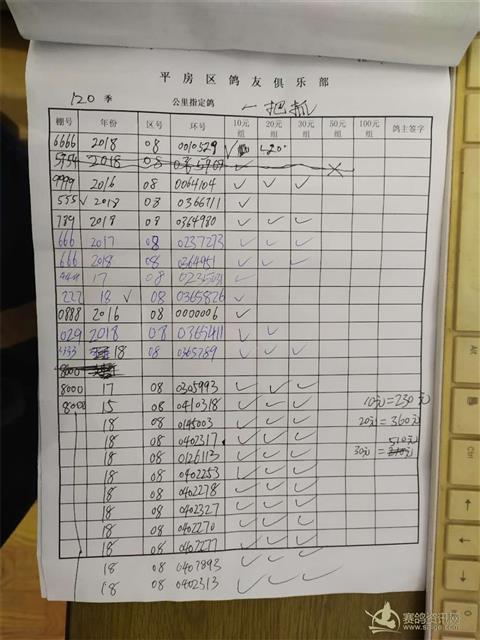 平房区鸽友俱乐部
120 季 公里指定鸽 一把抓
棚号 年份 区号 环号 10元组 20元组 30元组 50元组 100元组 鸽主签字
6666 2018 08 0010529 ✓
5954 2018 08 ✓ ✕
9999 2016 08 0064104 ✓ ✓ ✓
555 ✓ 2018 08 0366711 ✓
789 2018 08 0364980 ✓ ✓ ✓
666 2017 08 0237273 ✓ ✓ ✓
666 2018 08 0364951 ✓ ✓ ✓
17 08 ✓
222 18 ✓ 08 0365826 ✓
0888 2016 08 0000006 ✓
029 2018 08 0365411 ✓ ✓
18 08 0365789 ✓ ✓ ✓
8000
8000 17 08 0305993 ✓ ✓ ✓
8000 15 08 0410318 ✓ ✓ ✓ 10元=230元
18 08 0145003 ✓ ✓ ✓ 20元=360元
18 08 0402317 ✓ ✓ ✓ 510元
18 08 0126113 ✓ ✓ ✓ 30元=
18 08 0402253 ✓ ✓ ✓
18 08 0402278 ✓ ✓ ✓
18 08 0402327 ✓ ✓ ✓
18 08 0402270 ✓ ✓ ✓
18 08 0402277 ✓ ✓ ✓
18 08 0407893 ✓ ✓ ✓
18 08 0402313 ✓ ✓ ✓
赛鸽资讯网